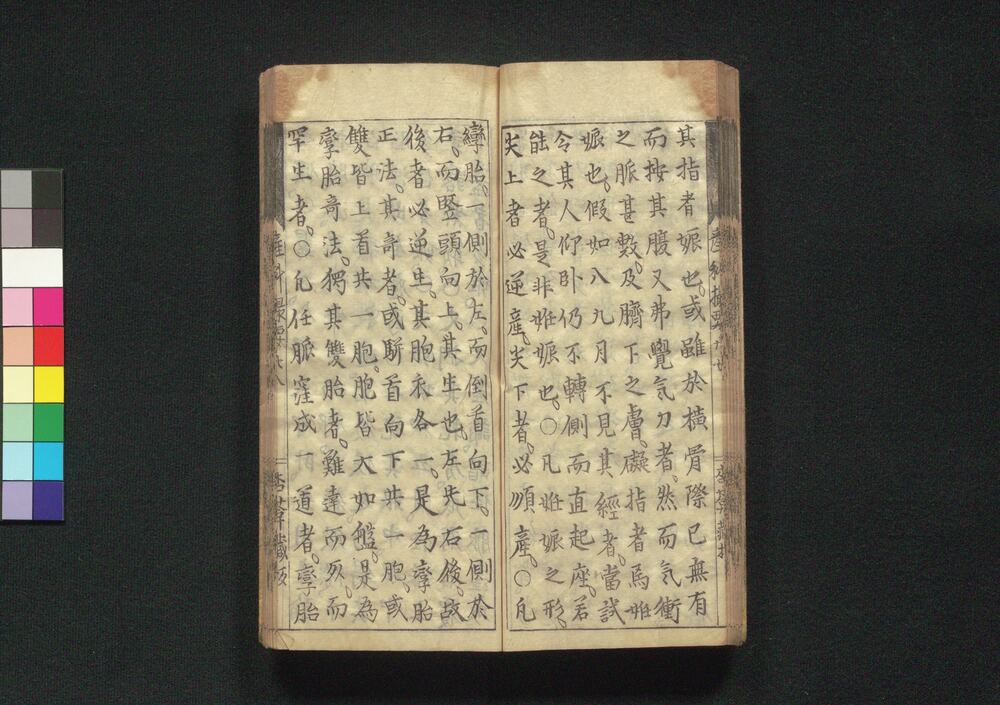 其指者娠也。或雖於橫骨際已無有
而按其腹又弗覺気刀者。然而気衝
之脈甚數。及臍下之膚。礙指者爲姙
娠也。假如八九月不見其經者。當試
令其人仰卧仍不轉側而直起座。若
能之者。是非姙娠也。〇凡姙娠之形。
尖上者必逆產。尖下者。必順產。〇凡
孿胎。一側於左。而倒首向下。一側於
右。而竪頭向上。其生也。左先右後。故
後者必逆生。其胞衣各一。是為孿胎
正法。其奇者。或駢首向下共一胞。或
雙皆上首共一胞。胞皆大如盤。是為
孿胎奇法。獨其雙胎者。難達而夙。而
罕生者。〇凡任脈窪成一道者。孿胎